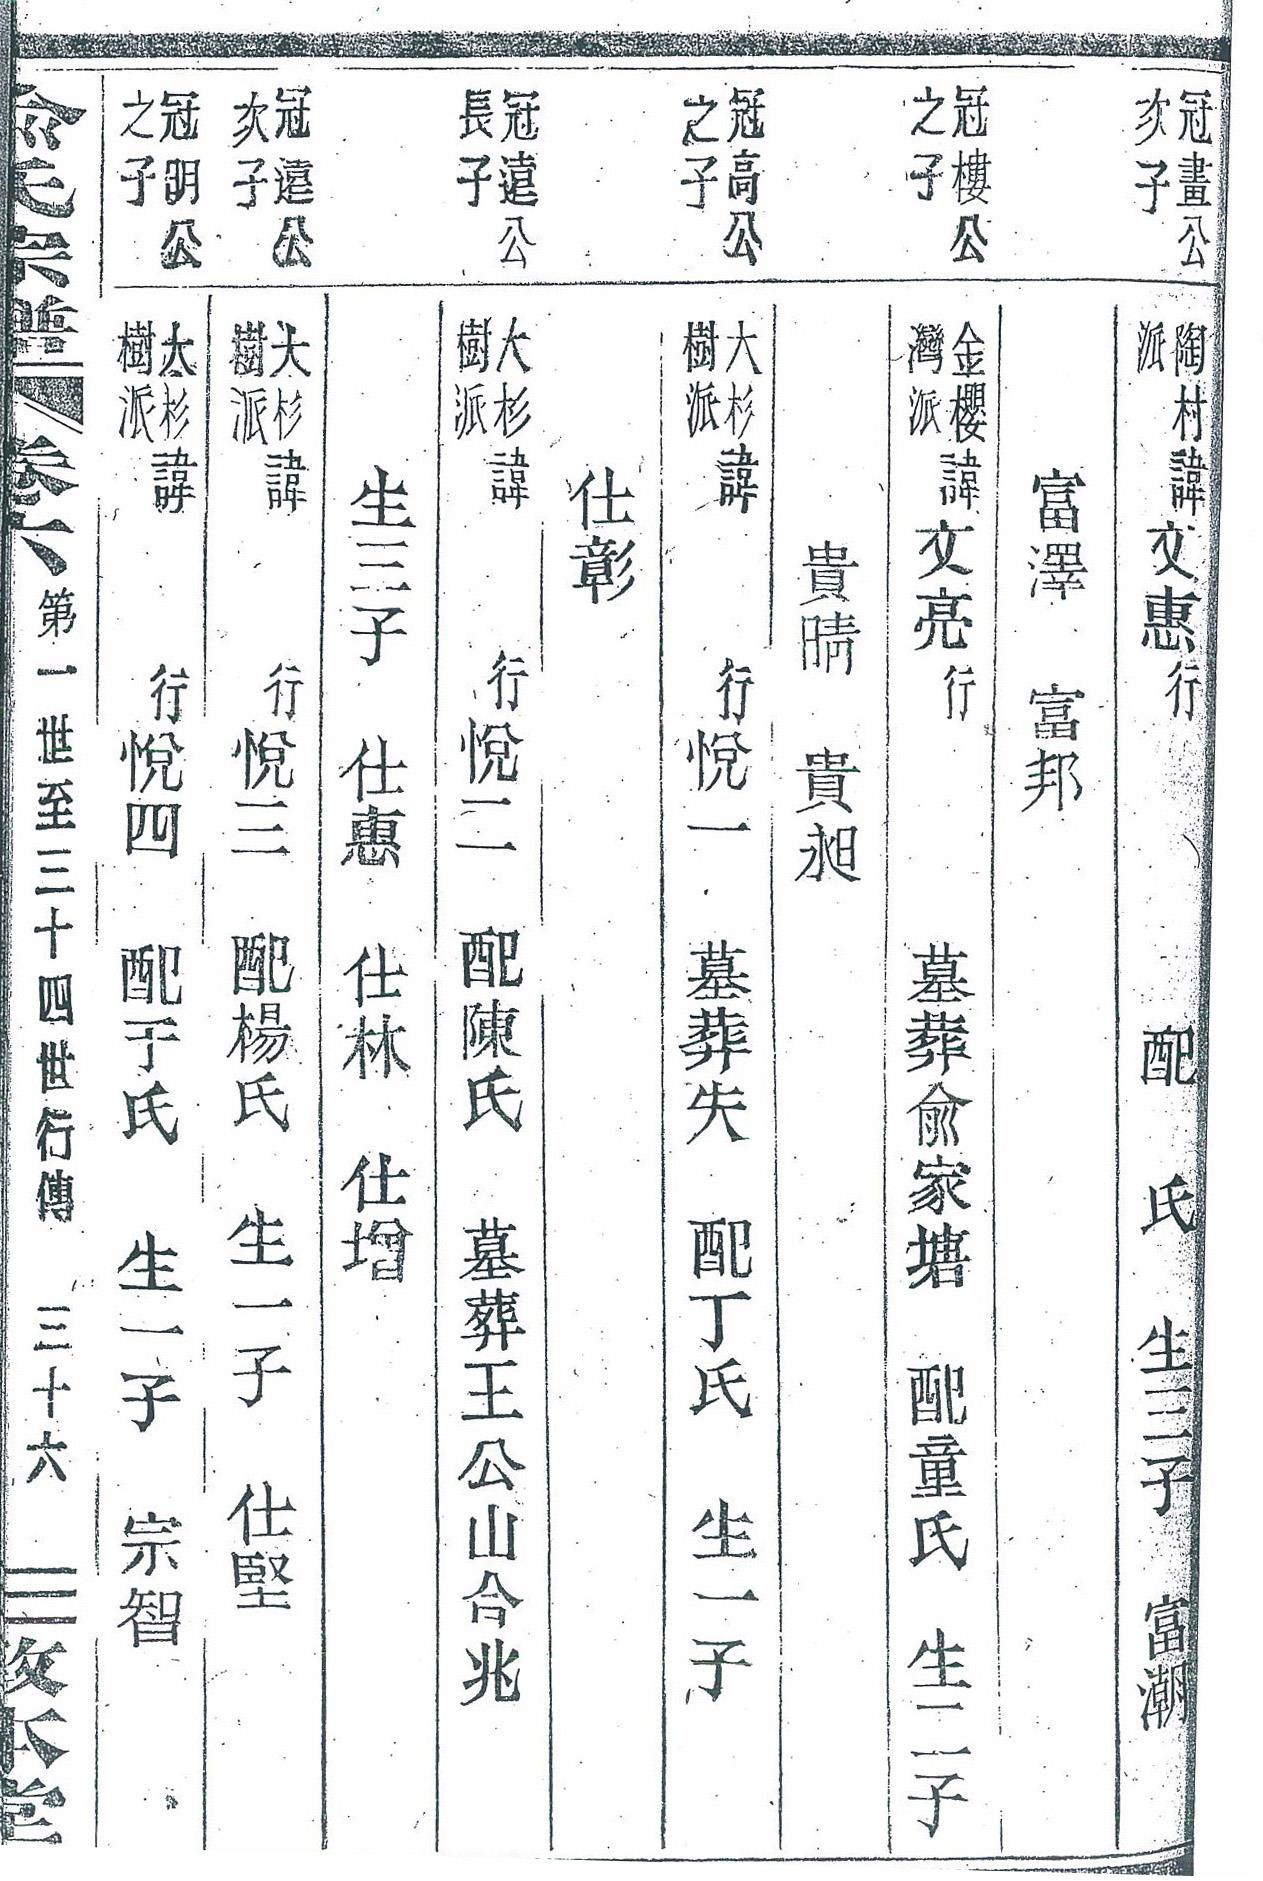 冠畫公
次子
陶村
派
諱文惠行 配 氏 生三子 富潮
富澤 富邦
冠樓公
之子
金櫻
灣派
諱文亮行 墓葬俞家塘 配童氏 生二子
貴晴 貴昶
冠高公
之子
大杉
樹派
諱 行悅一 墓葬失 配丁氏 生一子
仕彰
冠遠公
長子
大杉
樹派
諱 行悅二 配陳氏 墓葬王公山合兆
生三子 仕惠 仕林 仕增
冠遠公
次子
大杉
樹派
諱 行悅三 配楊氏 生一子 仕堅
冠明公
之子
大杉
樹派
諱 行悅四 配于氏 生一子 宗智
俞氏宗譜 卷六 第一世至三十四世行傳 三十六 敦本堂